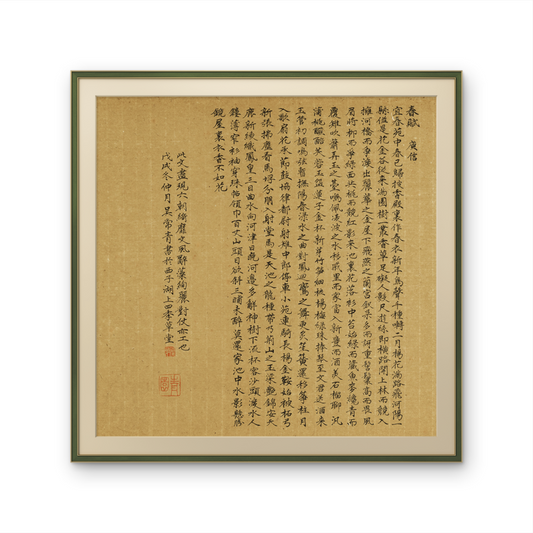 春賦 庾信
宜春苑中春已歸披香殿裏作春衣新年鳥聲千種囀二月楊花滿路飛河陽一
縣併是花金谷從來滿園樹一叢香草足礙人數尺遊絲即橫路開上林而競入
擁河橋而爭渡出麗華之金屋下飛燕之蘭宮釵朵多而訝重髻鬟高而畏風
眉將柳而爭綠面共桃而競紅影來池裏花落衫中苔始綠而藏魚麥纔青而
覆雉吹簫弄玉之臺鳴佩凌波之水移戚里而家富入新豐而酒美石榴聊汎
蒲桃醱醅芙蓉玉盌蓮子金杯新芽竹筍細核楊梅綠珠捧琴至文君送酒來
玉管初調鳴弦暫撫陽春淥水之曲對鳳迴鸞之舞更炙笙簧還移箏柱月
入歌扇花承節鼓協律都尉射雉中郎停車小苑連騎長楊金鞍始被柘弓
新張拂塵看馬埒分朋入射堂馬是天池之龍種帶乃荊山之玉梁艷錦安天
鹿新綾織鳳凰三日曲水向河津日晚河邊多解神樹下流杯客沙頭渡水人
鏤薄窄衫袖穿珠帖領巾百丈山頭日欲斜三晡未醉莫還家池中水影懸勝
鏡屋裏衣香不如花
此文盡現六朝綺靡文風辭藻絢麗對仗亦工也
戊戌冬仲月吳常青書於西子湖上四季草堂